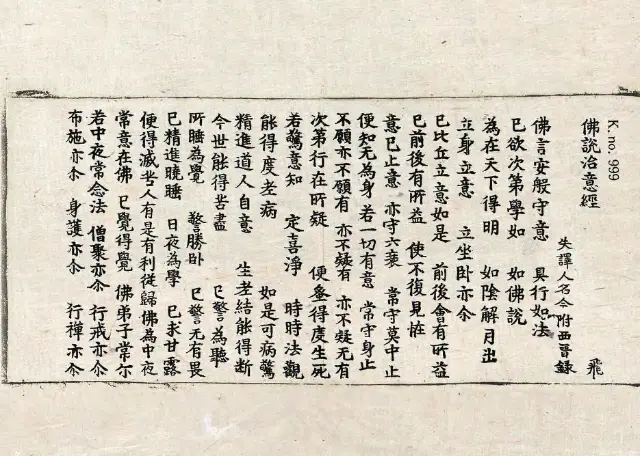 K. no. 999
佛說治意經
失譯人名今附西晉錄 飛
佛言安般守意 具行如法
已欲次第學如 如佛說
為在天下得明 如陰解月出
立身立意 立坐卧亦尒
已比丘立意如是 前後會有所益
已前後有所益 使不復見恠
意已止意 亦守六衰 常守莫中止
便知无為身 若一切有意 常守身止
不願亦不願有 亦不疑有 亦不疑无有
次第行在所疑 便蚤得度生死
若驚意知 定喜淨 時時法觀
能得度老病 如是可病驚
精進道人自意 生老結能得断
今世能得苦盡 已警為聽
所睡為覺 警勝卧 已警无有畏
已精進曉睡 日夜為學 已求甘露
便得滅苦 人有是有利 從歸佛為中夜
常意在佛 已覺得覺 佛弟子常尒
若中夜常念法 僧聚亦尒 行戒亦尒
布施亦尒 身護亦尒 行禪亦尒